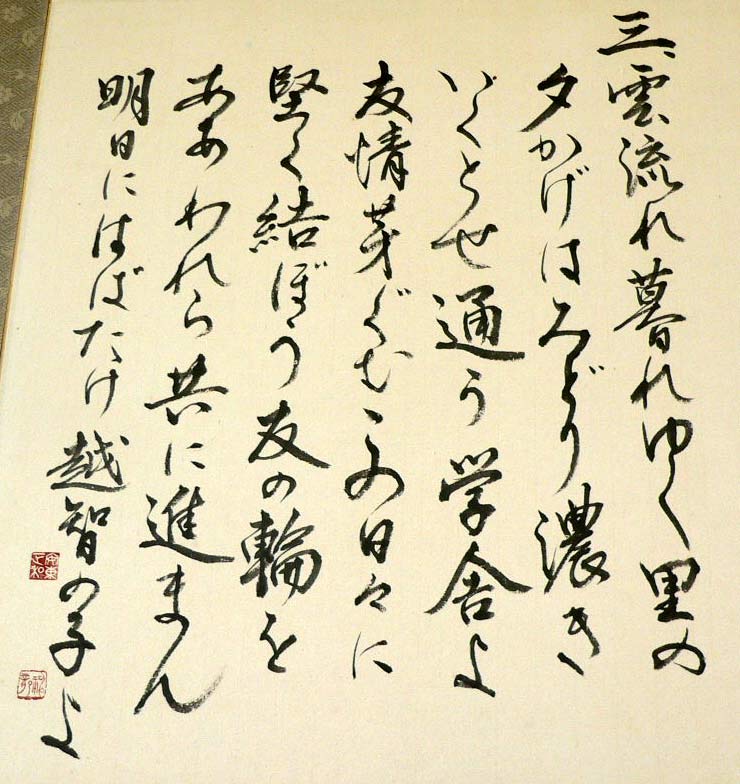 三、雲流れ暮れゆく里の
夕かげはみどり濃き
いくとせ通う学舎よ
友情芽ぐむこの日々に
堅く結ぼう友の輪を
ああわれら共に進まん
明日にはばたけ越智の子よ